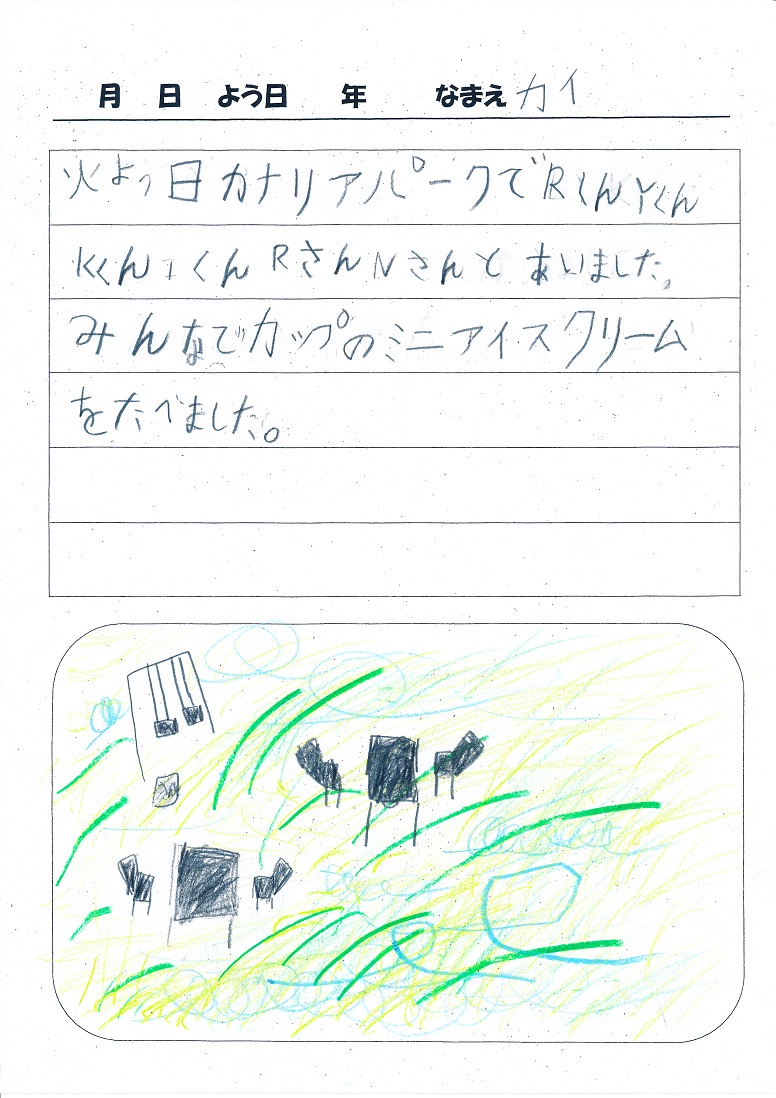 月 日 よう日 年 なまえ カイ
火よう日カナリアパークでRくんYくん
KくんIくんRさんNさんとあいました。
みんなでカップのミニアイスクリーム
をたべました。